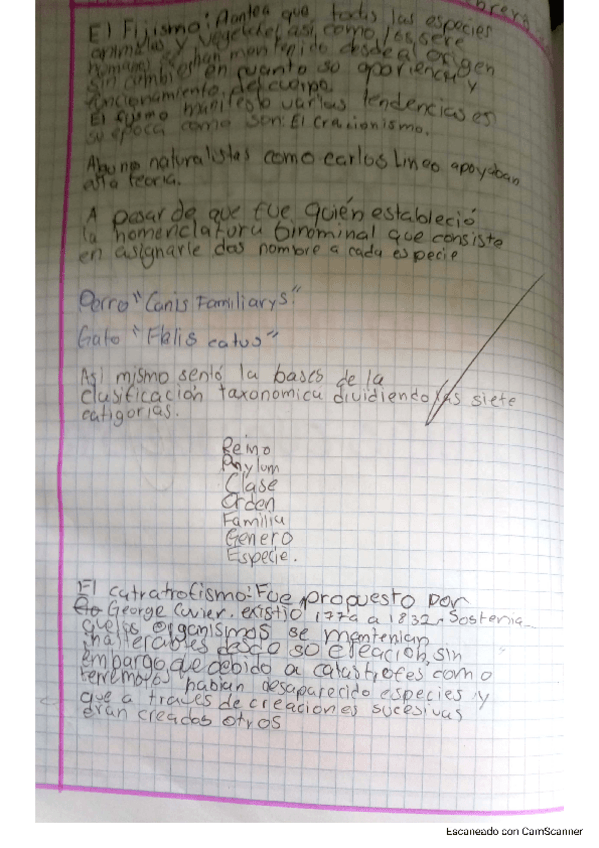 brera
El Fijismo: Plantea que todas las especies
animales y vegetales asi, como los sere
humanos se han mantenido desde al origen
sin cambios en cuanto so apariencia y
funcionamiento del cuerpo.
El fijismo manifesto varias tendencias es
su epoca como son: El cracionismo.
Alguno naturalistas como carlos Lineo apoyaban
esta teoria.
A pesar de que fue quién estableció
la nomenclatura binominal que consiste
en asignarle dos nombre a cada especie
Perro "Canis Familiarys"
Gato "Felis catus"
Asi mismo sentó la bases de la
clasificación taxonomica dividiendo las siete
catigorias.
Reino
Phylum
Clase
Orden
Familia
Genero
Especie.
El catratrofismo: Fue propuesto por
George Cuvier. existio 1779 a 1832. Sostenia
que los organismos se mantenian
inalterables desde so creación, sin
embargo, que debido a catastrofes como
terremotos habian desaparecido especies y
que a traves de creaciones sucesivas
eran creados otros
Escaneado con CamScanner